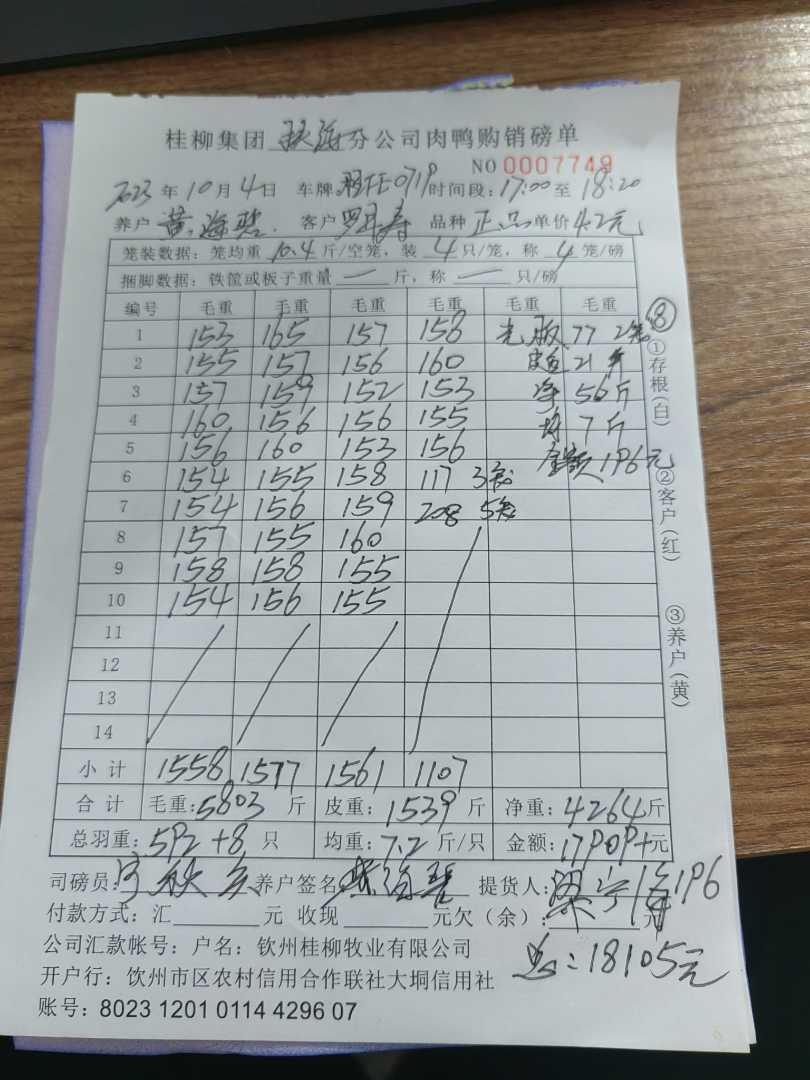 桂柳集团 珠海 分公司肉鸭购销磅单
NO 0007749
2023 年 10 月 4 日 车牌 0719 时间段: 17:00 至 18:20
养户 黄海碧 客户 罗 寿 品种 正品 单价 4.2元
笼装数据: 笼均重 10.4 斤/空笼, 装 4 只/笼, 称 4 笼/磅
捆脚数据: 铁筐或板子重量 — 斤, 称 — 只/磅
编号 毛重 毛重 毛重 毛重 毛重 毛重
1 153 165 157 158 光版 77 2笼 ⑧
2 155 157 156 160 皮重 21 斤
3 157 159 152 153 净 56斤
4 160 156 156 155 均 7斤
5 156 160 153 156 金额 196元
6 154 155 158 117 3笼
7 154 156 159 208 5笼
8 157 155 160
9 158 158 155
10 154 156 155
11
12
13
14
小计 1558 1577 1561 1107
合计 毛重: 5803 斤 皮重: 1539 斤 净重: 4264斤
总羽重: 592+8 只 均重: 7.2 斤/只 金额: 17909+元
196
司磅员: 养户签名 提货人:
付款方式: 汇 元 收现 元欠(余): 元
公司汇款帐号: 户名: 钦州桂柳牧业有限公司
总: 18105元
开户行: 饮州市区农村信用合作联社大垌信用社
账号: 8023 1201 0114 4296 07
①存根(白)
②客户(红)
③养户(黄)